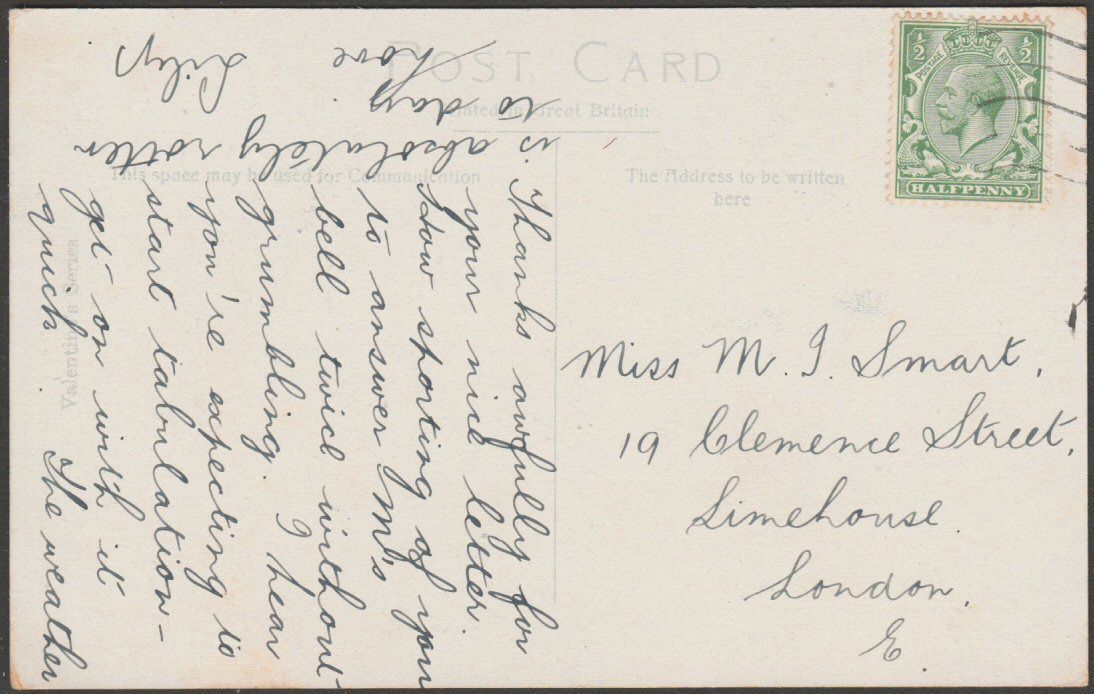 POST CARD
Printed in Great Britain
This space may be used for Communication
The Address to be written
here
Valentine's Series
½ ½
POSTAGE REVENUE
HALFPENNY
Thanks awfully for
your nice letter.
How sporting of you
to answer M's
bell twice without
grumbling. I hear
you're expecting to
start tabulation –
get on with it
quick. The weather
is absolutely rotten
to day
Love
Lily
Miss M. I. Smart,
19 Clemence Street,
Limehouse.
London.
E.